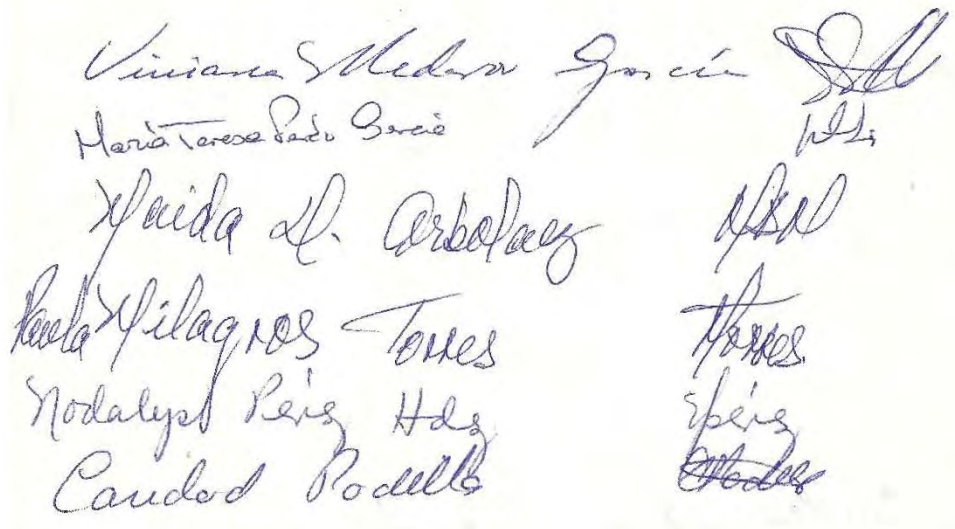 Viviana S Mederos García
María Teresa Pardo García
Maida D. Arbolaez
Paula Milagros Torres Torres
Nodalys Pérez Hdz Pérez
Caridad Padilla